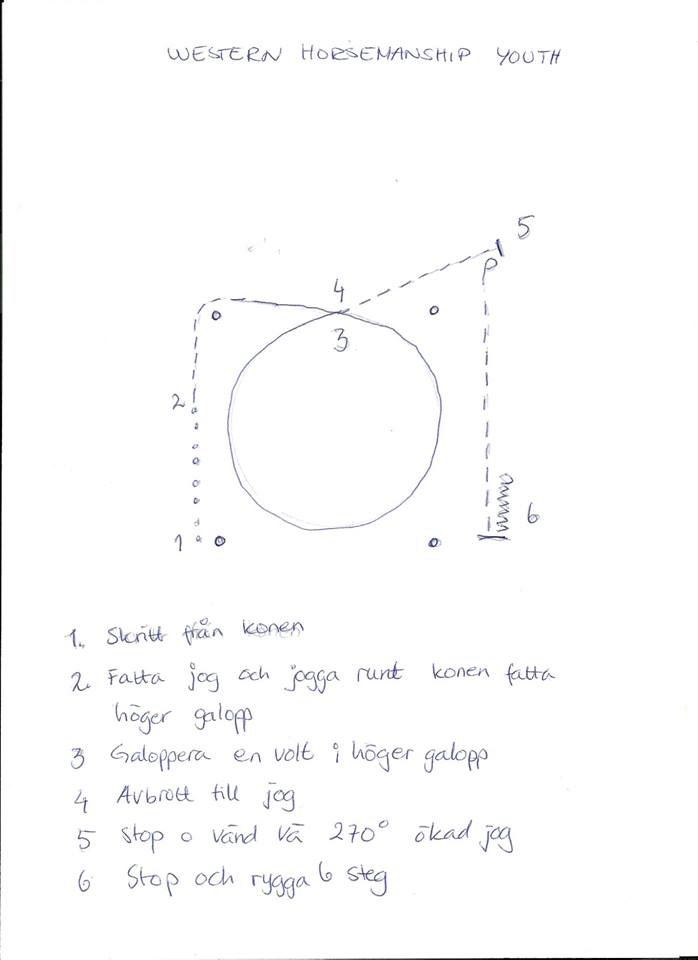 WESTERN HORSEMANSHIP YOUTH
5
P
4
3
2
6
1
1. Skritt från konen
2 Fatta jog och jogga runt konen fatta
höger galopp
3 Galoppera en volt i höger galopp
4 Avbrott till jog
5 Stop o vänd vä 270° ökad jog
6 Stop och rygga 6 steg